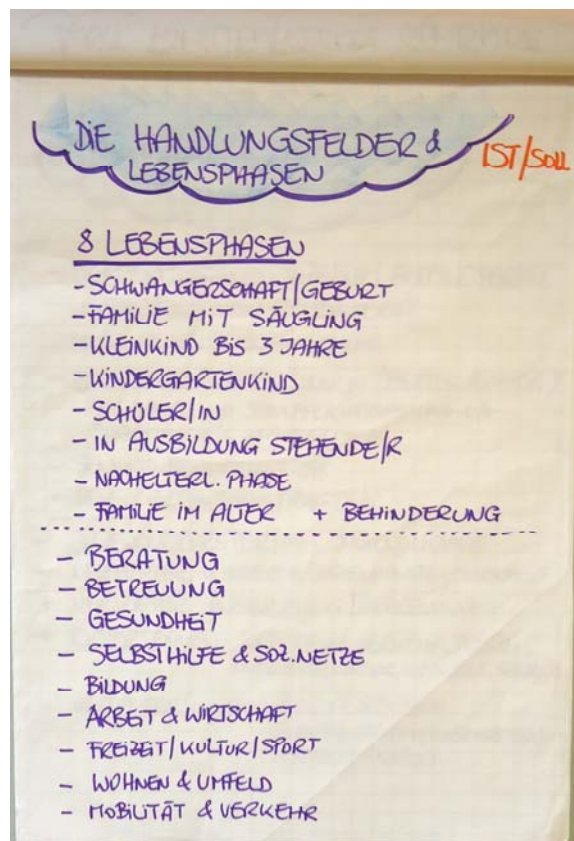 DIE HANDLUNGSFELDER &
LEBENSPHASEN
IST/SOLL
8 LEBENSPHASEN
- SCHWANGERSCHAFT/GEBURT
- FAMILIE MIT SÄUGLING
- KLEINKIND BIS 3 JAHRE
- KINDERGARTENKIND
- SCHÜLER/IN
- IN AUSBILDUNG STEHENDE/R
- NACHELTERL. PHASE
- FAMILIE IM ALTER + BEHINDERUNG
- BERATUNG
- BETREUUNG
- GESUNDHEIT
- SELBSTHILFE & SOZ.NETZE
- BILDUNG
- ARBEIT & WIRTSCHAFT
- FREIZEIT/KULTUR/SPORT
- WOHNEN & UMFELD
- MOBILITÄT & VERKEHR